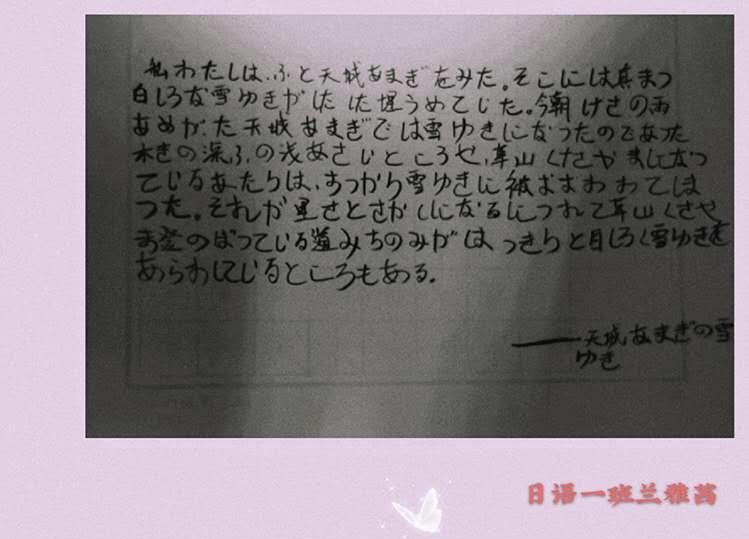 私わたしは、ふと天城あまぎをみた。そこには真まつ
白しろな雪ゆきがはた はた埋うめてじた。今朝 けさのあ
あめが、た天城 あまぎでは雪ゆきになつたのであった
木きの深ふ、の浅あさいところや、草山くさやまになつ
ているあたりは、すつかり雪ゆきに被おおわ わては
つた。それが里さとさかしになるにつれて草山くさや
まのはつている道みちのみがは つきりと白しろく雪ゆきを
あらわしているところもある。
——天城あまぎの雪
ゆき
日语一班兰雅茜